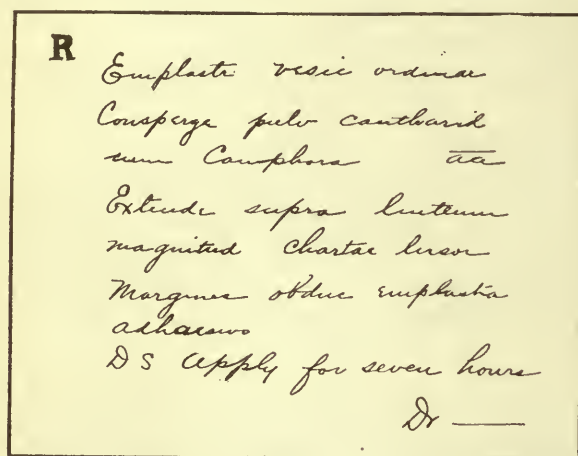 R
Emplastr vesic ordinar
Consperge pulv cantharid
cum Camphora aa
Extende supra linteum
magnitud chartae lusor
Margines obduc emplastra
adhaesivo
D S Apply for seven hours
Dr —